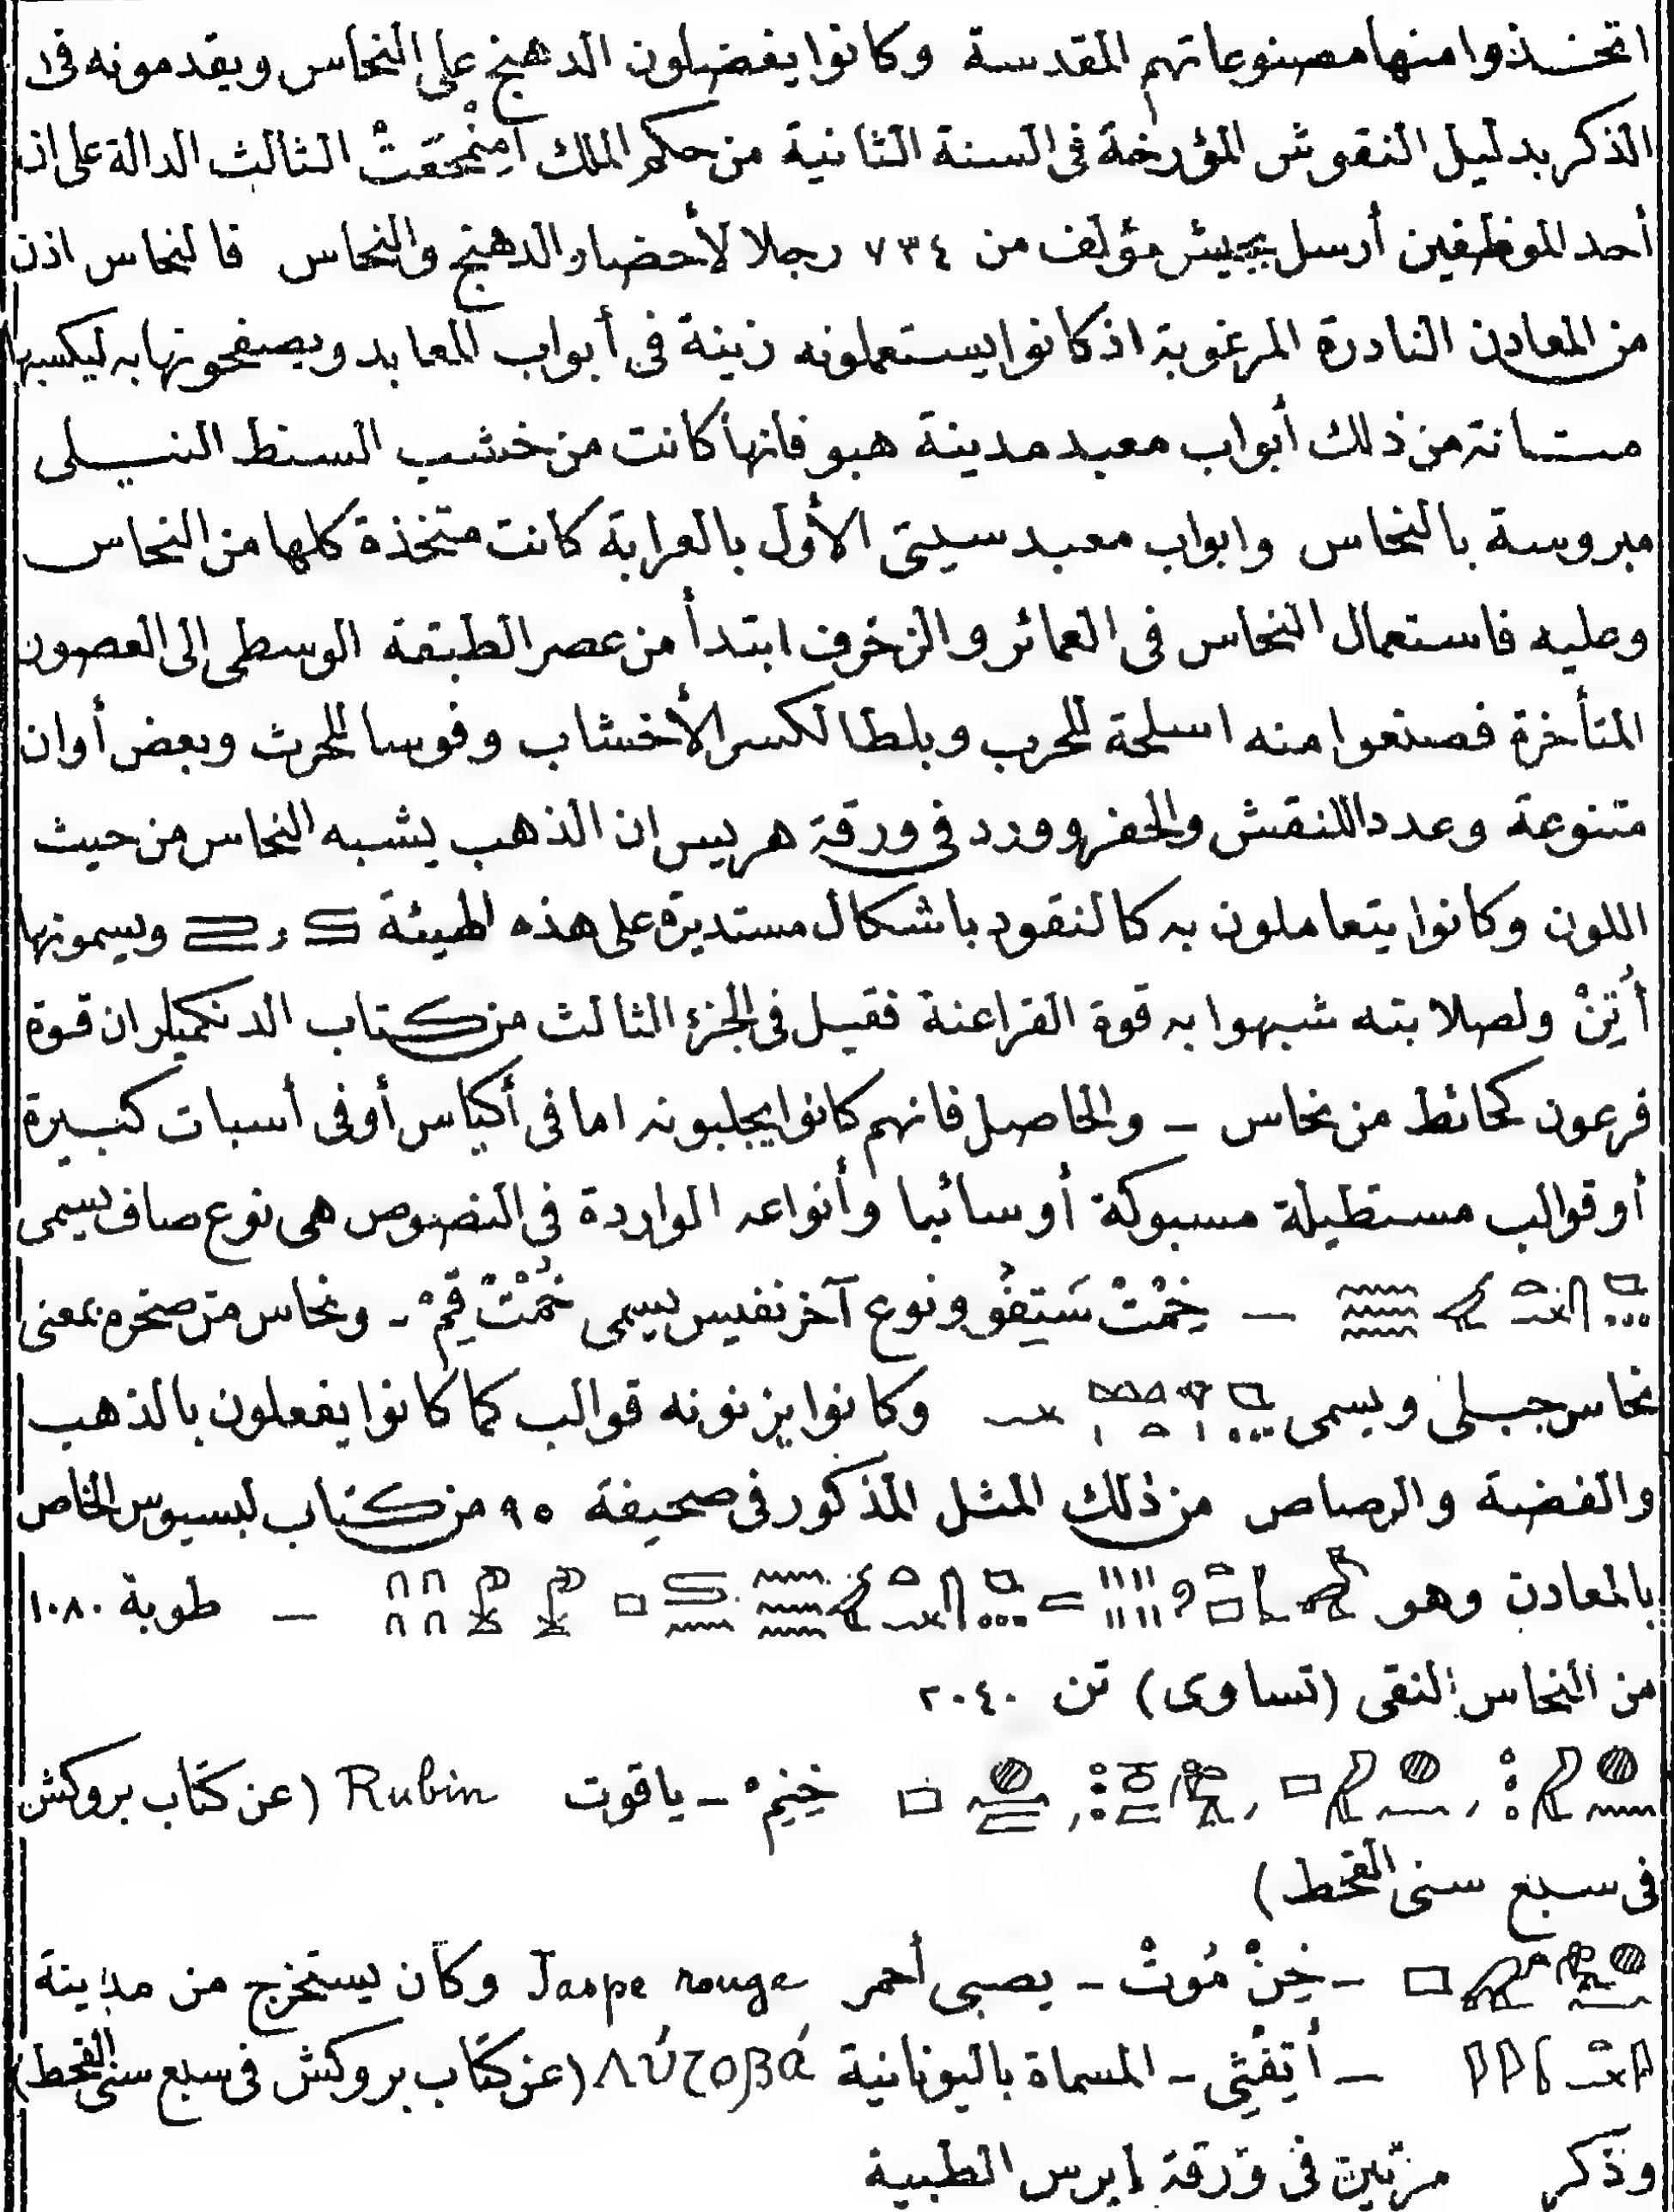 اتخذوا منها مصنوعاتهم المقدسة وكانوا يفضلون الدهنج على النحاس ويقدمونه فى
الذكر بدليل النقوش المؤرخة فى السنة الثانية من حكم الملك اَمِنْمحَعَتْ الثالث الدالة على ان
أحد الموظفين أرسل بجيش مؤلف من ٧٣٤ رجلا لأحضار الدهنج والنحاس فالنحاس اذن
من المعادن النادرة المرغوبة اذ كانوا يستعملونه زينة فى أبواب المعابد ويصفحونها به ليكسبها
متانة من ذلك أبواب معبد مدينة هبو فانها كانت من خشب السنط النيلى
مبروسة بالنحاس وابواب معبد سيتى الأول بالعرابة كانت متخذة كلها من النحاس
وعليه فاستعمال النحاس فى العمائر والزخرف ابتدأ من عصر الطبقة الوسطى الى العصور
المتأخرة فصنعوا منه اسلحة للحرب وبلطا لكسر الأخشاب وفوسا للحرث وبعض أوان
متنوعة وعددا للنقش والحفر وورد فى ورقة هريس ان الذهب يشبه النحاس من حيث
اللون وكانوا يتعاملون به كالنقود باشكال مستديرة على هذه الهيئة و ويسمونها
أُتِنْ ولصلابته شبهوا به قوة الفراعنة فقيل فى الجزء الثالث من كتاب الدنكميلر ان قوة
فرعون كحائط من نحاس – والحاصل فانهم كانوا يجلبونه اما فى أكياس أو فى أسبات كبيرة
أو قوالب مستطيلة مسبوكة أو سائبا وأنواعه الواردة فى النصوص هى نوع صاف يسمى
– خِمْتْ سَتِيفُو ونوع آخر نفيس يسمى خُمْتْ قِمْ – ونحاس من صخره بمعنى
نحاس جبلى ويسمى وكانوا يزنونه قوالب كما كانوا يفعلون بالذهب
والفضة والرصاص من ذلك المثل المذكور فى صحيفة ٩٥ من كتاب لبسيوس الخاص
بالمعادن وهو – طوبة ١٠٨٠
من النحاس النقى (تساوى) تن ٢٠٤٠
خِنِمْ – ياقوت Rubin (عن كتاب بروكش
فى سبع سنى القحط)
– خِنْ مُوتْ – يصبى أحمر Jaspe rouge وكان يستخرج من مدينة
– أتِفْتِى – المسماة باليونانية (عن كتاب بروكش فى سبع سنى القحط)
وذكر مرتين فى ورقة إبرس الطبية